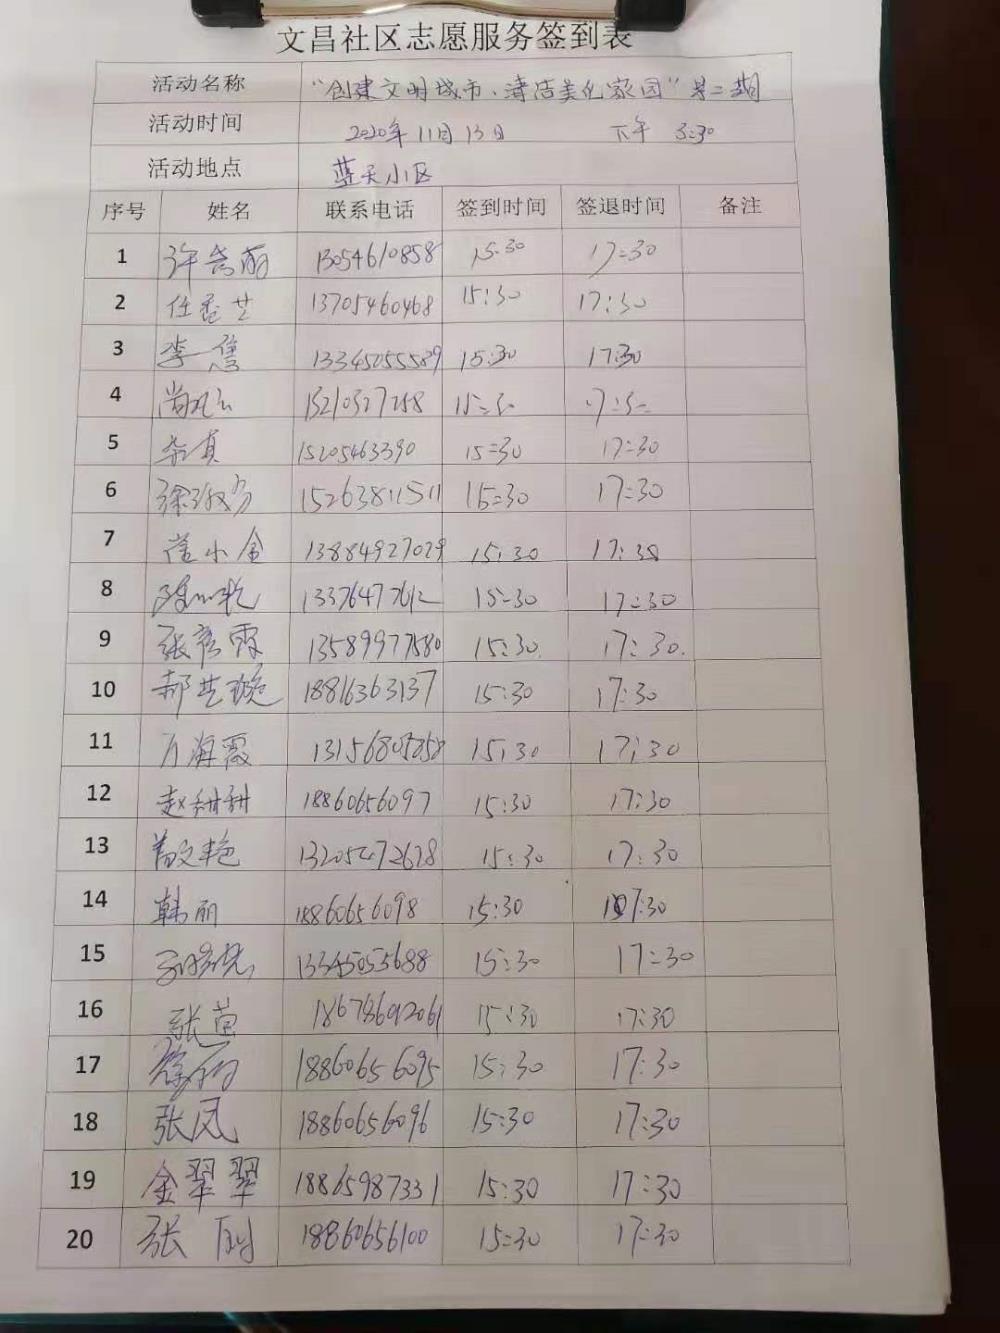 文昌社区志愿服务签到表
活动名称 “创建文明城市、清洁美化家园”第二期
活动时间 2020年11月13日 下午 3:30
活动地点 蓝天小区
序号 姓名 联系电话 签到时间 签退时间 备注
1 许 13054610858 15:30 17:30
2 任 芝 13705460468 15:30 17:30
3 李 13345055589 15:30 17:30
4 尚 15:30 17:30
5 15205463390 15:30 17:30
6 徐淑芳 15263811511 15:30 17:30
7 崔小金 13884927029 15:30 17:30
8 陈 13376477612 15:30 17:30
9 张彦霞 13589977580 15:30 17:30
10 郝芸璇 18816363137 15:30 17:30
11 万海霞 15:30 17:30
12 赵甜甜 18860656097 15:30 17:30
13 文艳 13205472628 15:30 17:30
14 韩丽 18860656098 15:30 17:30
15 13345055688 15:30 17:30
16 张莹 18678692061 15:30 17:30
17 18860656095 15:30 17:30
18 张凤 18860656096 15:30 17:30
19 金翠翠 18865987331 15:30 17:30
20 张刚 18860656100 15:30 17:30